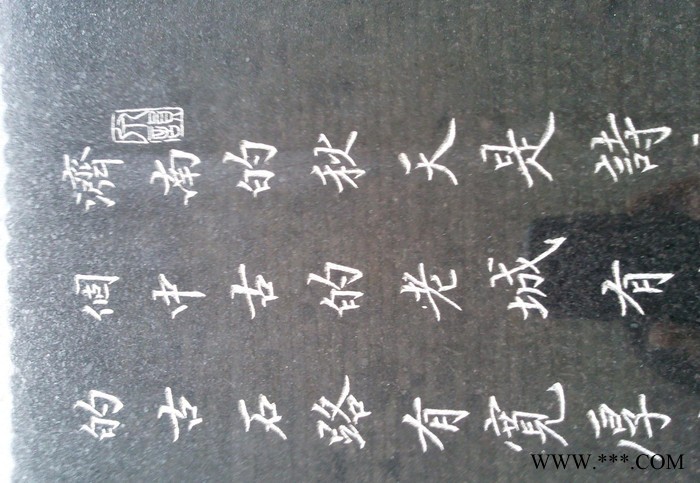 濟南的秋天是詩
個中古的老城有
的古石路有寬厚
WWW.***.COM